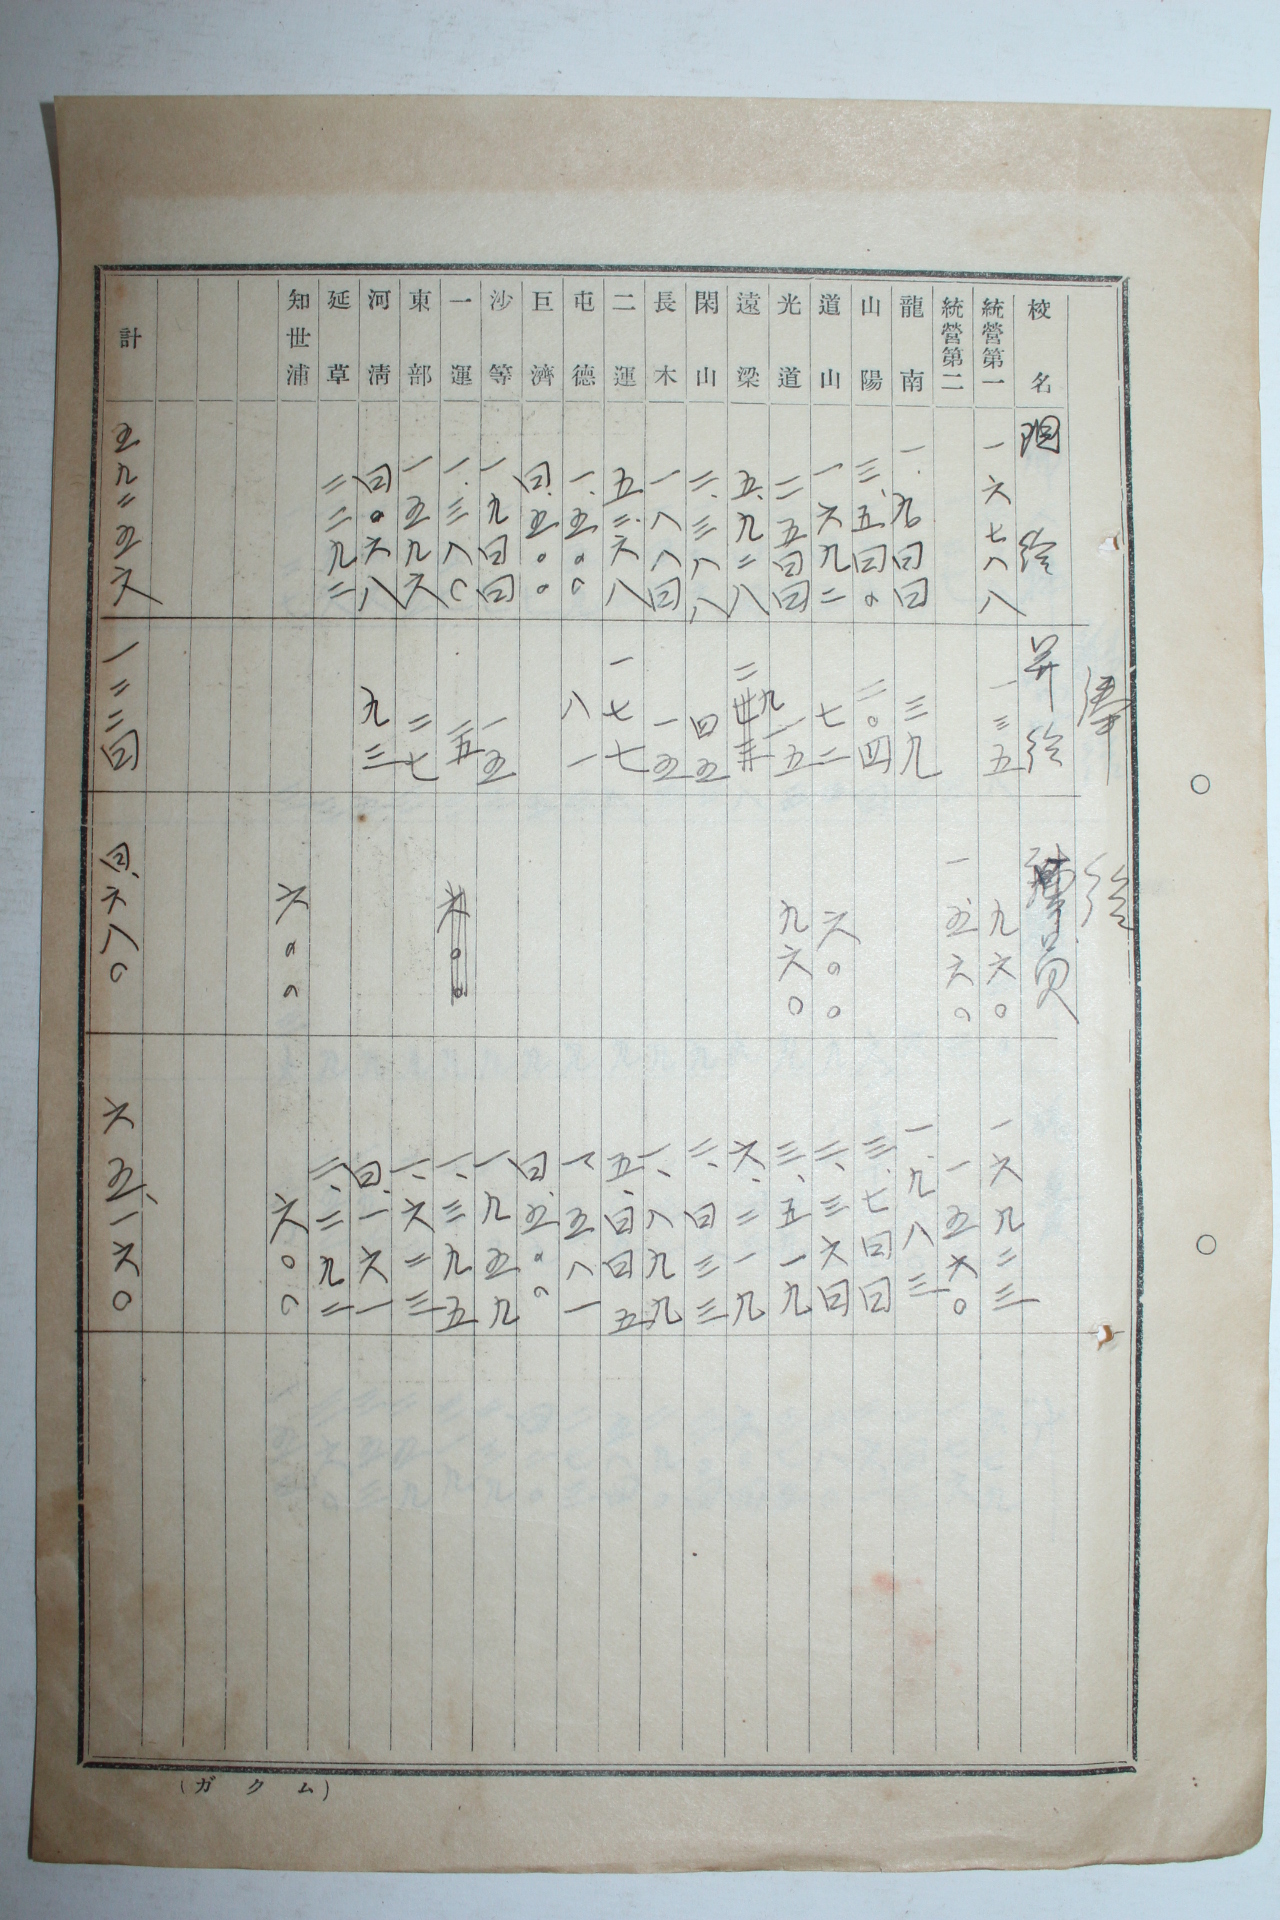 俸給
校名 現給 昇給 員
統營第一 一六七八八 一三五 九六〇 一六九二三
統營第二 一五六〇 一五六〇
龍南 一、九四四 三九 一、九八三
山陽 三、五四〇 二〇四 三、七四四
道山 一六九二 七二 六〇〇 二、三六四
光道 二五四四 一五 九六〇 三、五一九
遠梁 五、九二八 二九一 六、二一九
閑山 二、三八八 四五 二、四三三
長木 一八八四 一五 一、八九九
二運 五二六八 一七七 五、四四五
屯德 一、五〇〇 八一 一、五八一
巨濟 四、五〇〇 四、五〇〇
沙等 一九四四 一五 一、九五九
一運 一、三八〇 一五 六〇〇 一、三九五
東部 一五九六 二七 一、六二三
河淸 四〇六八 九三 四、一六一
延草 二二九二 二、二九二
知世浦 六〇〇 六〇〇
計 五九二五六 一二二四 四、六八〇 六五、一六〇
(ガクム)